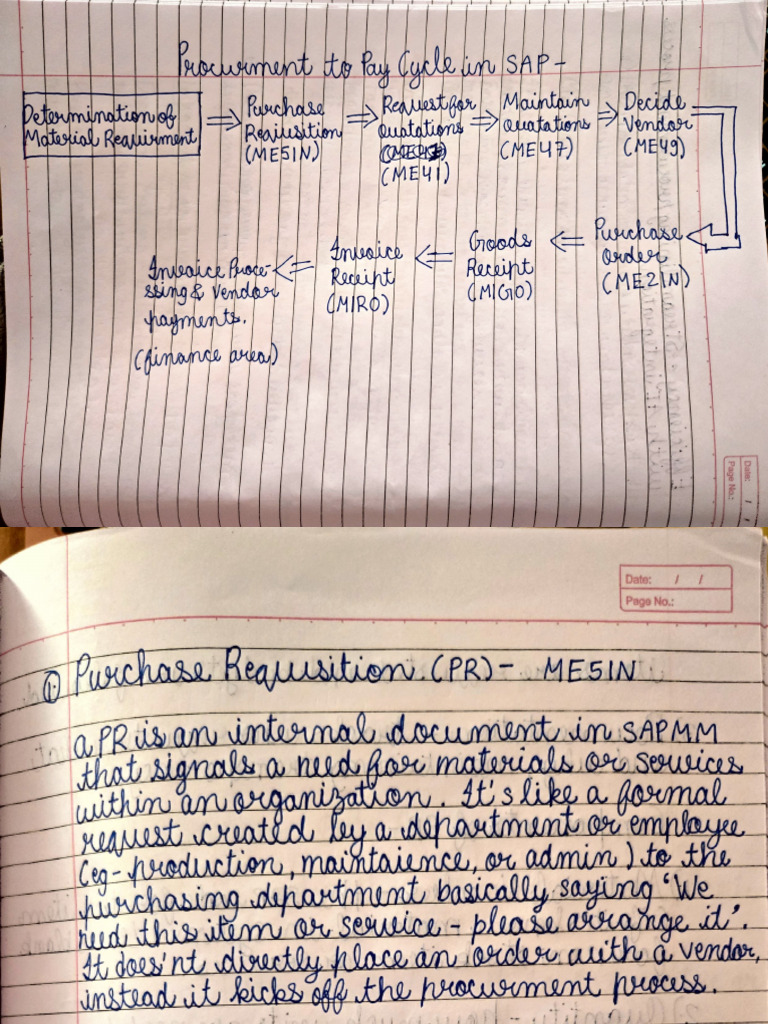 Procurment to Pay Cycle in SAP -
Determination of
Material Requirment
Purchase
Requisition
(ME51N)
Request for
Quatations
(ME41)
Maintain
Quatations
(ME47)
Decide
Vendor
(ME49)
Purchase
Order
(ME21N)
Goods
Receipt
(MIGO)
Invoice
Receipt
(MIRO)
Invoice Proce-
ssing & Vendor
payments.
(finance area)
Date: / /
Page No.:
Date: / /
Page No.:
① Purchase Requisition (PR) - ME51N
a PR is an internal document in SAP MM
that signals a need for materials or services
within an organization. It's like a formal
request created by a department or employee
(eg- production, maintaience, or admin) to the
purchasing department basically saying 'We
need this item or service - please arrange it'.
It does'nt directly place an order with a vendor,
instead it kicks off the procurment process.